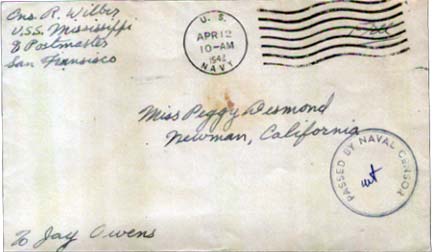 Ens. R. Wilber
U.S.S. Mississippi
% Postmaster
San Francisco
U. S.
APR 12
10-AM
1942
NAVY
Free
Miss Peggy Desmond
Newman, California
PASSED BY NAVAL CENSOR
% Jay Owens